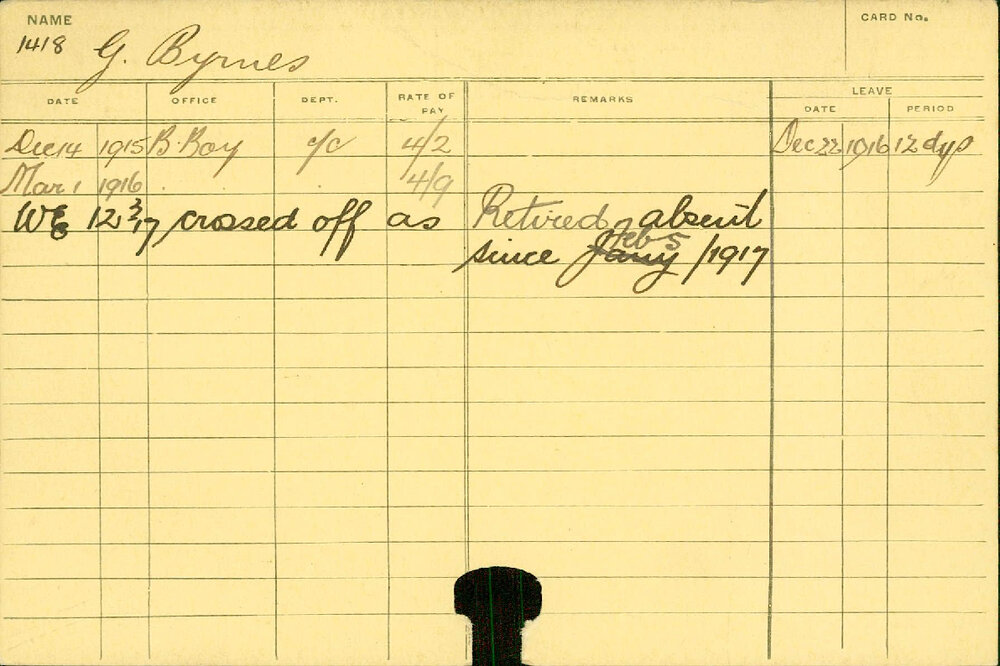 NAME
CARD No.
1418 G. Byrnes
DATE OFFICE DEPT. RATE OF PAY REMARKS LEAVE
DATE PERIOD
Dec 14 1915 B. Boy c/c 4/2 Dec 22 1916 12 dys
Mar 1 1916 4/9
WE 12 3/17 crossed off as Retired, absent
since Jany Feb 5 /1917